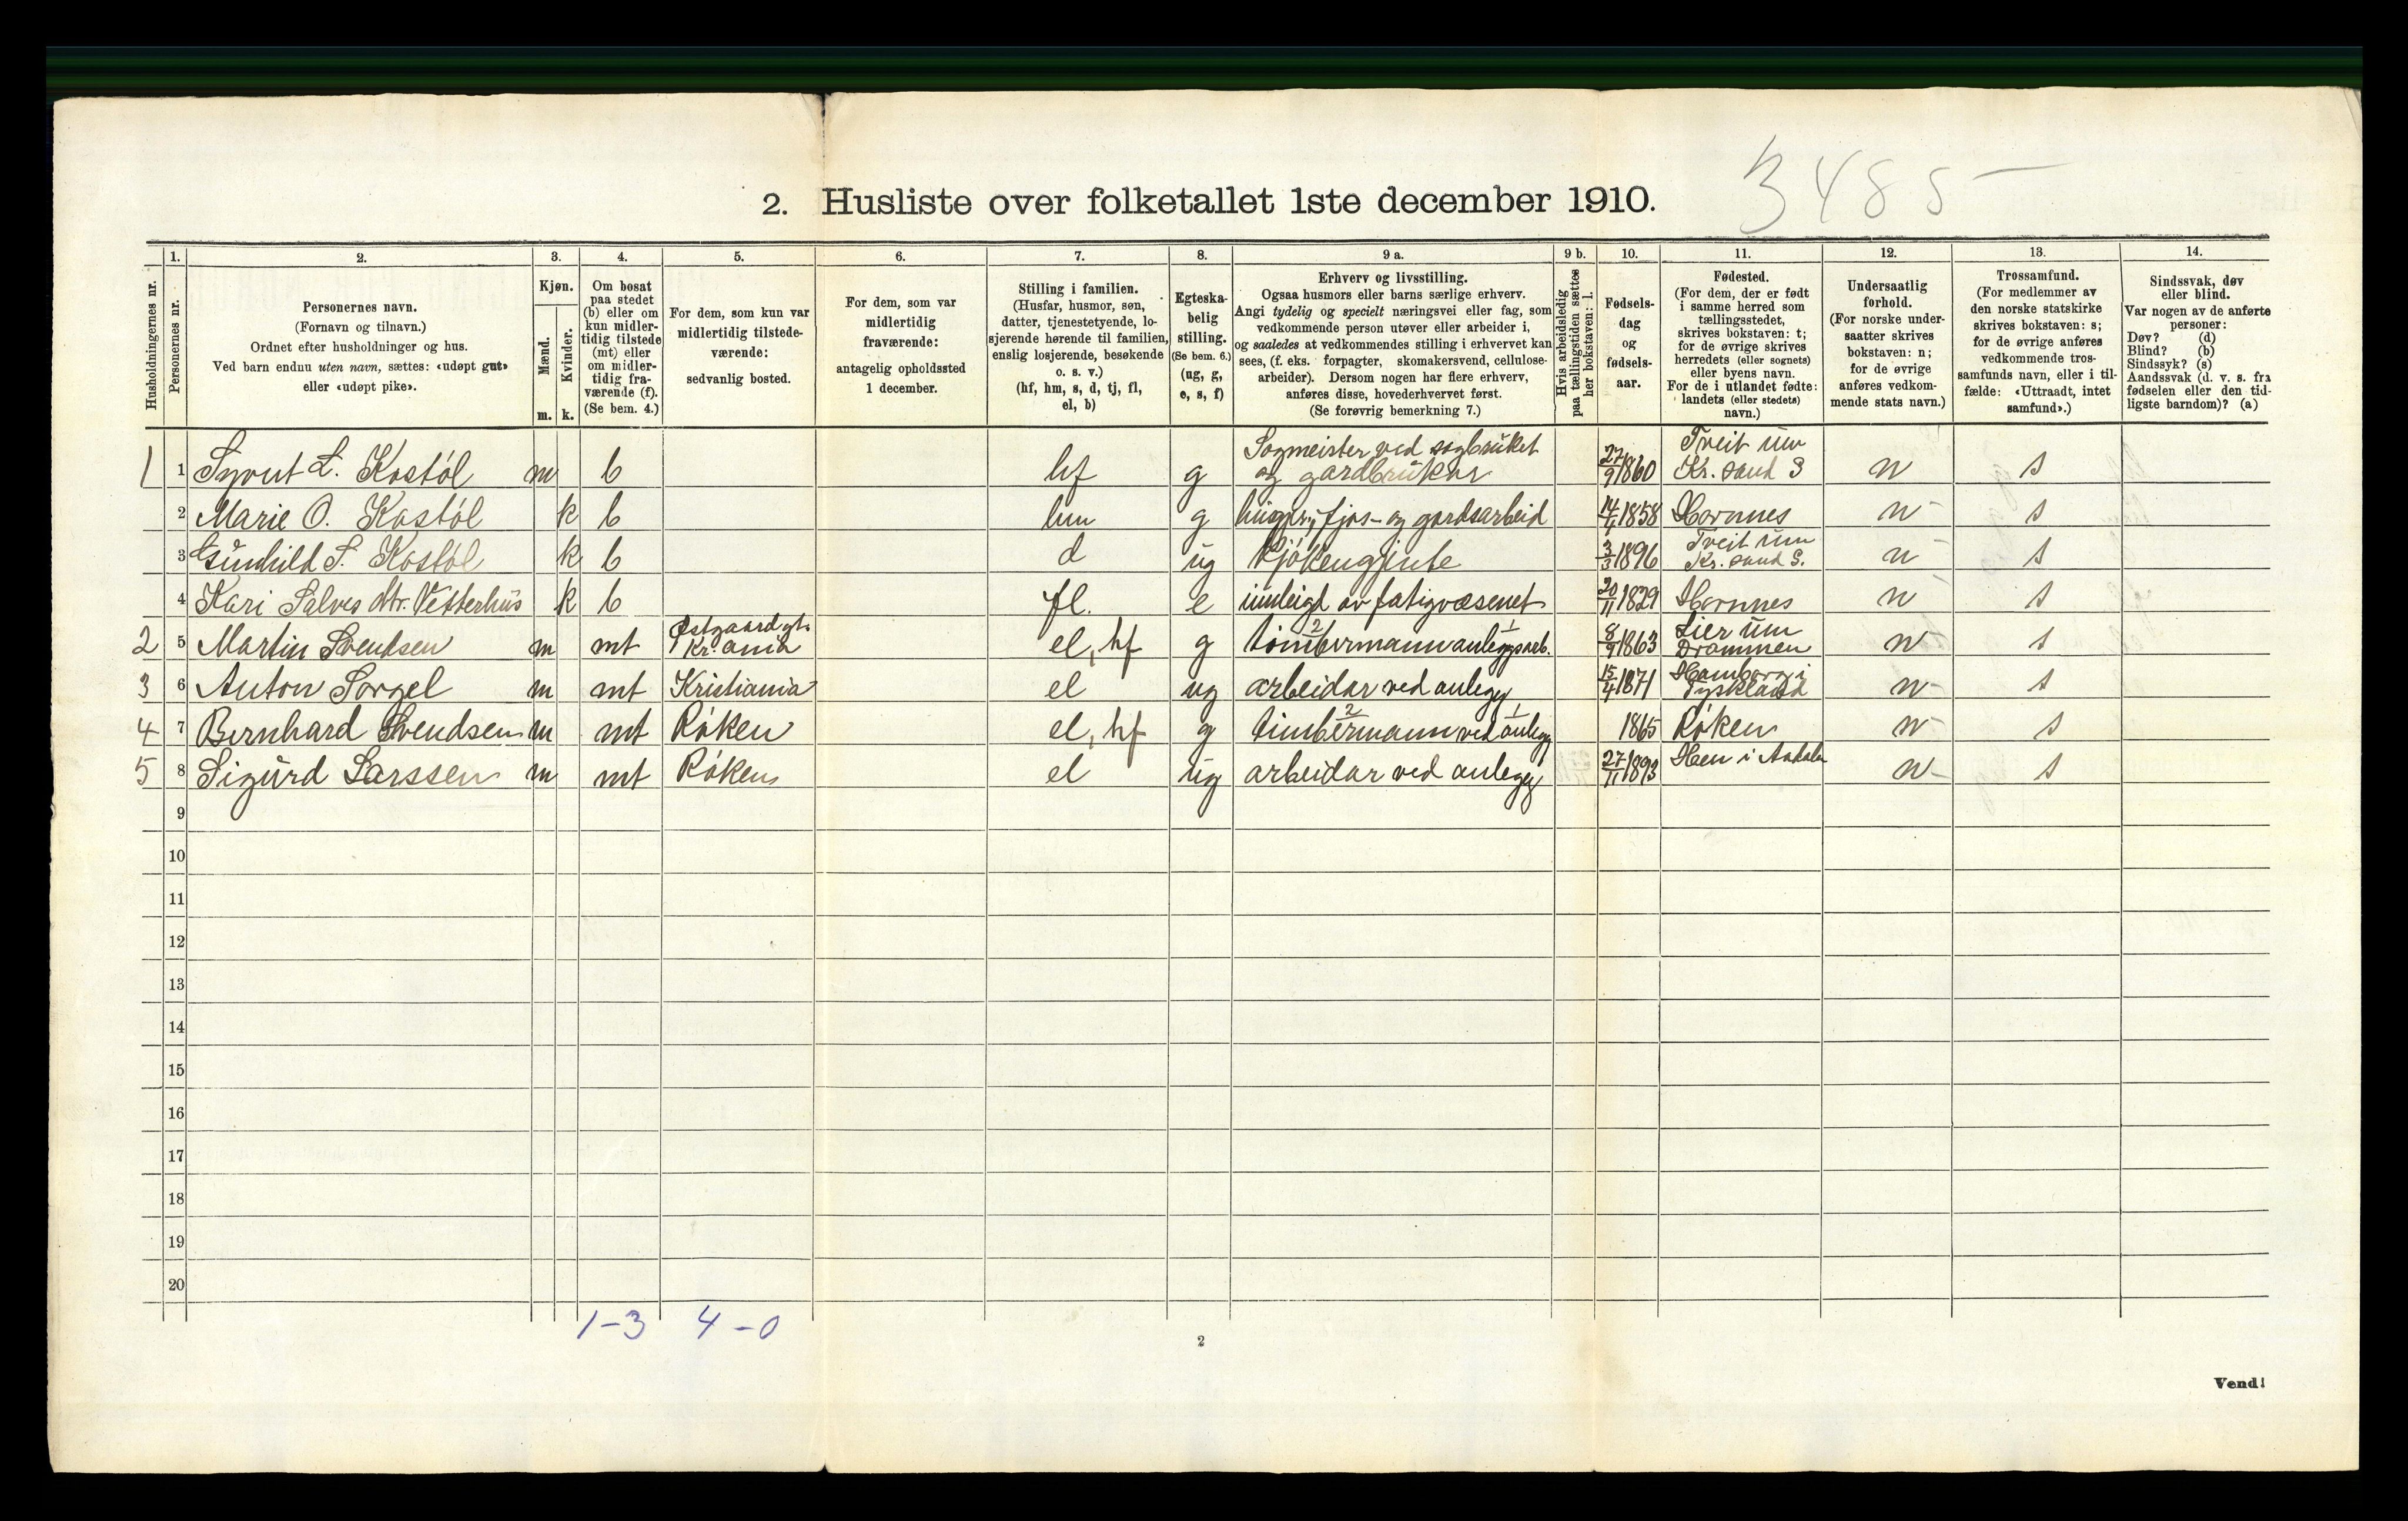 3485
2. Husliste over folketallet 1ste december 1910.
Husholdningernes nr.
1.
Personernes nr.
2.
Personernes navn.
(Fornavn og tilnavn.)
Ordnet efter husholdninger og hus.
Ved barn endnu uten navn, sættes: «udøpt gut»
eller «udøpt pike».
3.
Kjøn.
Mænd.
m.
Kvinder.
k.
4.
Om bosat
paa stedet
(b) eller om
kun midler-
tidig tilstede
(mt) eller
om midler-
tidig fra-
værende (f).
(Se bem. 4.)
5.
For dem, som kun var
midlertidig tilstede-
værende:
sedvanlig bosted.
6.
For dem, som var
midlertidig
fraværende:
antagelig opholdssted
1 december.
7.
Stilling i familien.
(Husfar, husmor, søn,
datter, tjenestetyende, lo-
sjerende hørende til familien,
enslig losjerende, besøkende
o. s. v.)
(hf, hm, s, d, tj, fl,
el, b)
8.
Egteska-
belig
stilling.
(Se bem. 6.)
(ug, g,
e, s, f)
9 a.
Erhverv og livsstilling.
Ogsaa husmors eller barns særlige erhverv.
Angi tydelig og specielt næringsvei eller fag, som
vedkommende person utøver eller arbeider i,
og saaledes at vedkommendes stilling i erhvervet kan
sees, (f. eks. forpagter, skomakersvend, cellulose-
arbeider). Dersom nogen har flere erhverv,
anføres disse, hovederhvervet først.
(Se forøvrig bemerkning 7.)
9 b.
Hvis arbeidsledig
paa tællingstiden sættes
her bokstaven: l.
10.
Fødsels-
dag
og
fødsels-
aar.
11.
Fødested.
(For dem, der er født
i samme herred som
tællingsstedet,
skrives bokstaven: t;
for de øvrige skrives
herredets (eller sognets)
eller byens navn.
For de i utlandet fødte:
landets (eller stedets)
navn.)
12.
Undersaatlig
forhold.
(For norske under-
saatter skrives
bokstaven: n;
for de øvrige
anføres vedkom-
mende stats navn.)
13.
Trossamfund.
(For medlemmer av
den norske statskirke
skrives bokstaven: s;
for de øvrige anføres
vedkommende tros-
samfunds navn, eller i til-
fælde: «Uttraadt, intet
samfund».)
14.
Sindssvak, døv
eller blind.
Var nogen av de anførte
personer:
Døv? (d)
Blind? (b)
Sindssyk? (s)
Aandssvak (d. v. s. fra
fødselen eller den tid-
ligste barndom)? (a)
Sogmeister ved sogbruket Tveit um
1 1 Syvert L. Kostøl m b hf g og gardbrukar 27/9 1860 Kr. sand S n s
2 Marie O. Kostøl k b hm g husgjer., fjos- og gardsarbeid 14/1 1858 Hornnes n s
Tveit um
3 Gunhild S. Kostøl k b d ug kjøkengjente 3/3 1896 Kr. sand S. n s
4 Kari Salves dtr. Vetterhus k b fl. e innleigd av fatigvæsenet 20/11 1829 Hornnes n s
Østgaard gt. 2 1 Lier um
2 5 Martin Svendsen m mt Kr.ania el, hf g tømmermann anleggsarb. 8/9 1863 Drammen n s
Hamborg i
3 6 Anton Sorgel m mt Kristiania el ug arbeidar ved anlegg 15/4 1871 Tyskland n s
2 1
4 7 Bernhard Svendsen m mt Røken el, hf g timbermann ved anlegg 1865 Røken n s
5 8 Sigurd Larssen m mt Røken el ug arbeidar ved anlegg 27/11 1893 Hen i Aadalen n s
9
10
11
12
13
14
15
16
17
18
19
20
1-3 4-0
2
Vend!